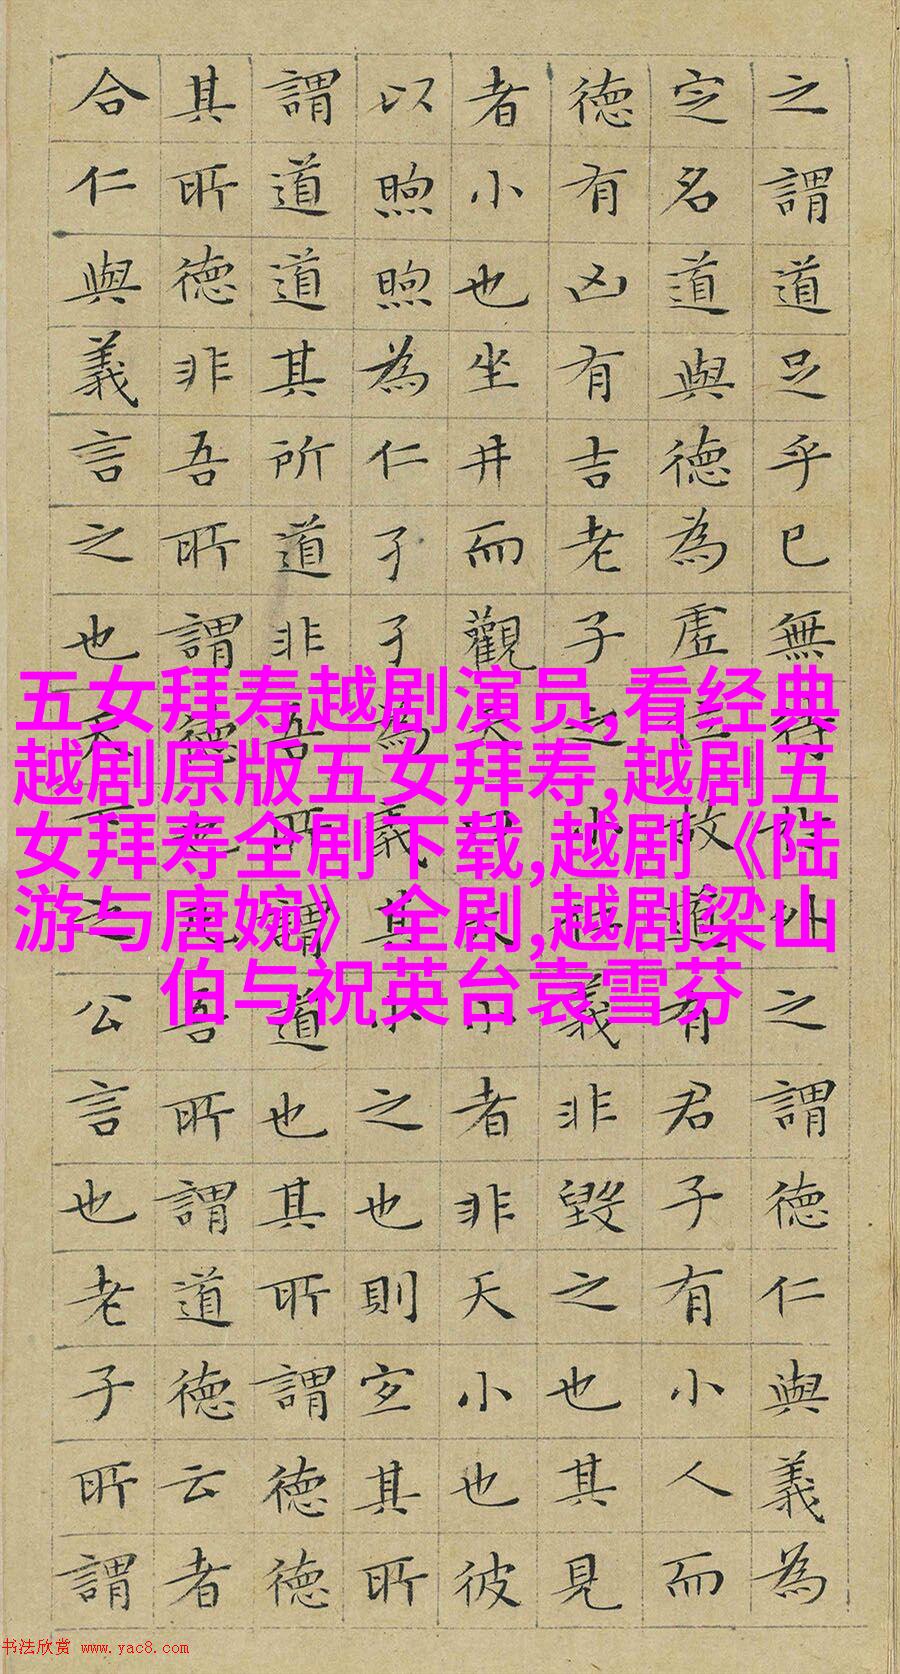 之謂道足乎已無待於外之謂德仁與義為
定名道與德為虛位故道有君子有小人而
德有凶有吉老子之小仁義非毀之也其見
者小也坐井而觀天曰天小者非天小也彼
以煦煦為仁孑孑為義其小之也則宜其所
謂道道其所道非吾所謂道也其所謂德德
其所德非吾所謂德也凡吾所謂道德云者
合仁與義言之也天下之公言也老子所謂
五女拜寿越剧演员,看经典
越剧原版五女拜寿,越剧五
女拜寿全剧下载,越剧《陆
游与唐婉》全剧,越剧梁山
伯与祝英台袁雪芬
书法欣赏 www.yac8.com